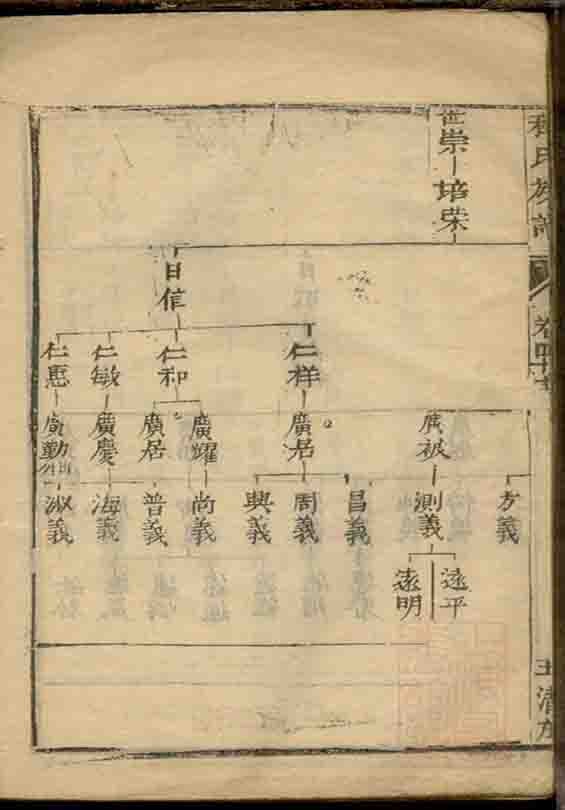 氏族譜
卷四十
王清
世崇
培荣
日信
仁祥
仁和
仁敏
仁惠
廣被
廣居
廣耀
廣居
廣慶
廣勤
方義
測義
昌義
周義
興義
尚義
普義
海義
淑義
遠平
遠明